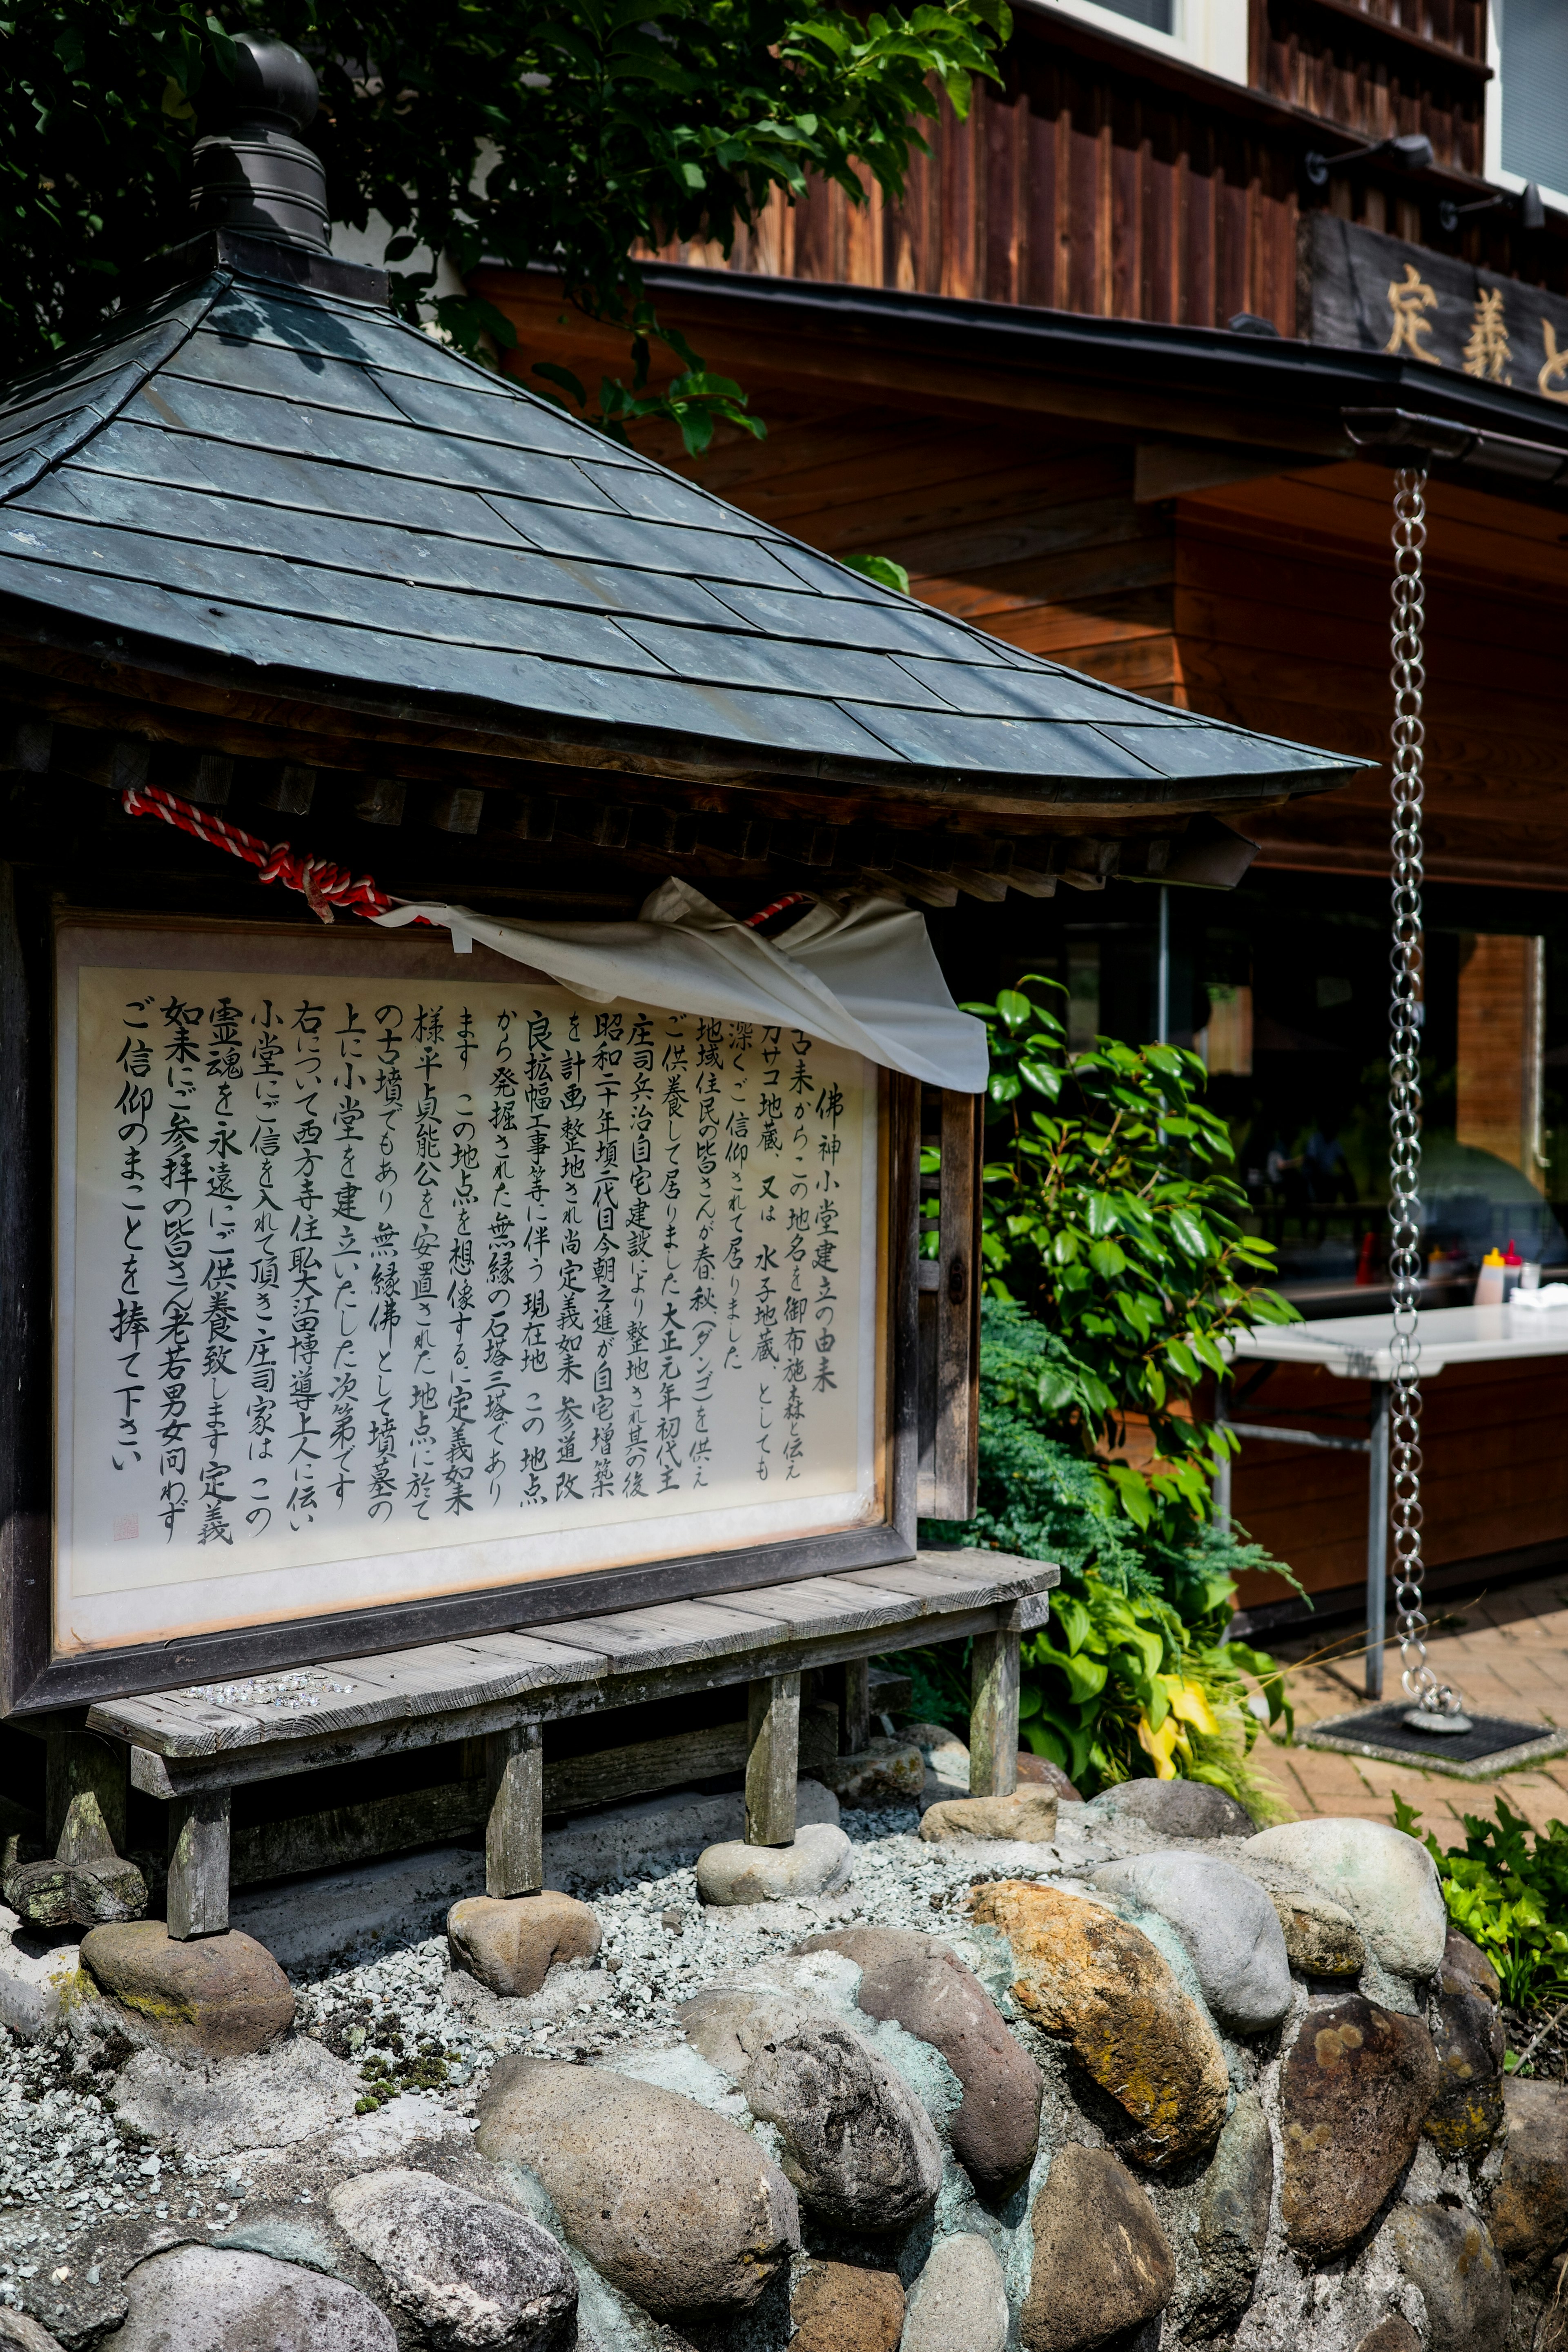 佛神小堂建立の由来
古来からこの地名を御布施森と伝え
カサコ地蔵、又は 水子地蔵、としても
深くご信仰されて居りました
地域住民の皆さんが春、秋、(ダンゴ)を供え
ご供養して居りました大正元年初代主
庄司兵治自宅建設により整地され其の後
昭和二十年頃三代目今朝之進が自宅増築
を計画整地され尚定義如来 参道改
良拡幅工事等に伴う現在地 この地点
から発掘された無縁の石塔三塔であり
ます この地点を想像するに定義如来
様平貞能公を安置された地点に於て
の古墳でもあり 無縁佛として墳墓の
上に小堂を建立いたした次第です
右について西方寺住職大江田博導上人に伝い
小堂にご信を入れて頂き庄司家は この
霊魂を永遠にご供養致します定義
如来にご参拝の皆さん老若男女問わず
ご信仰のまことを捧て下さい
定義と